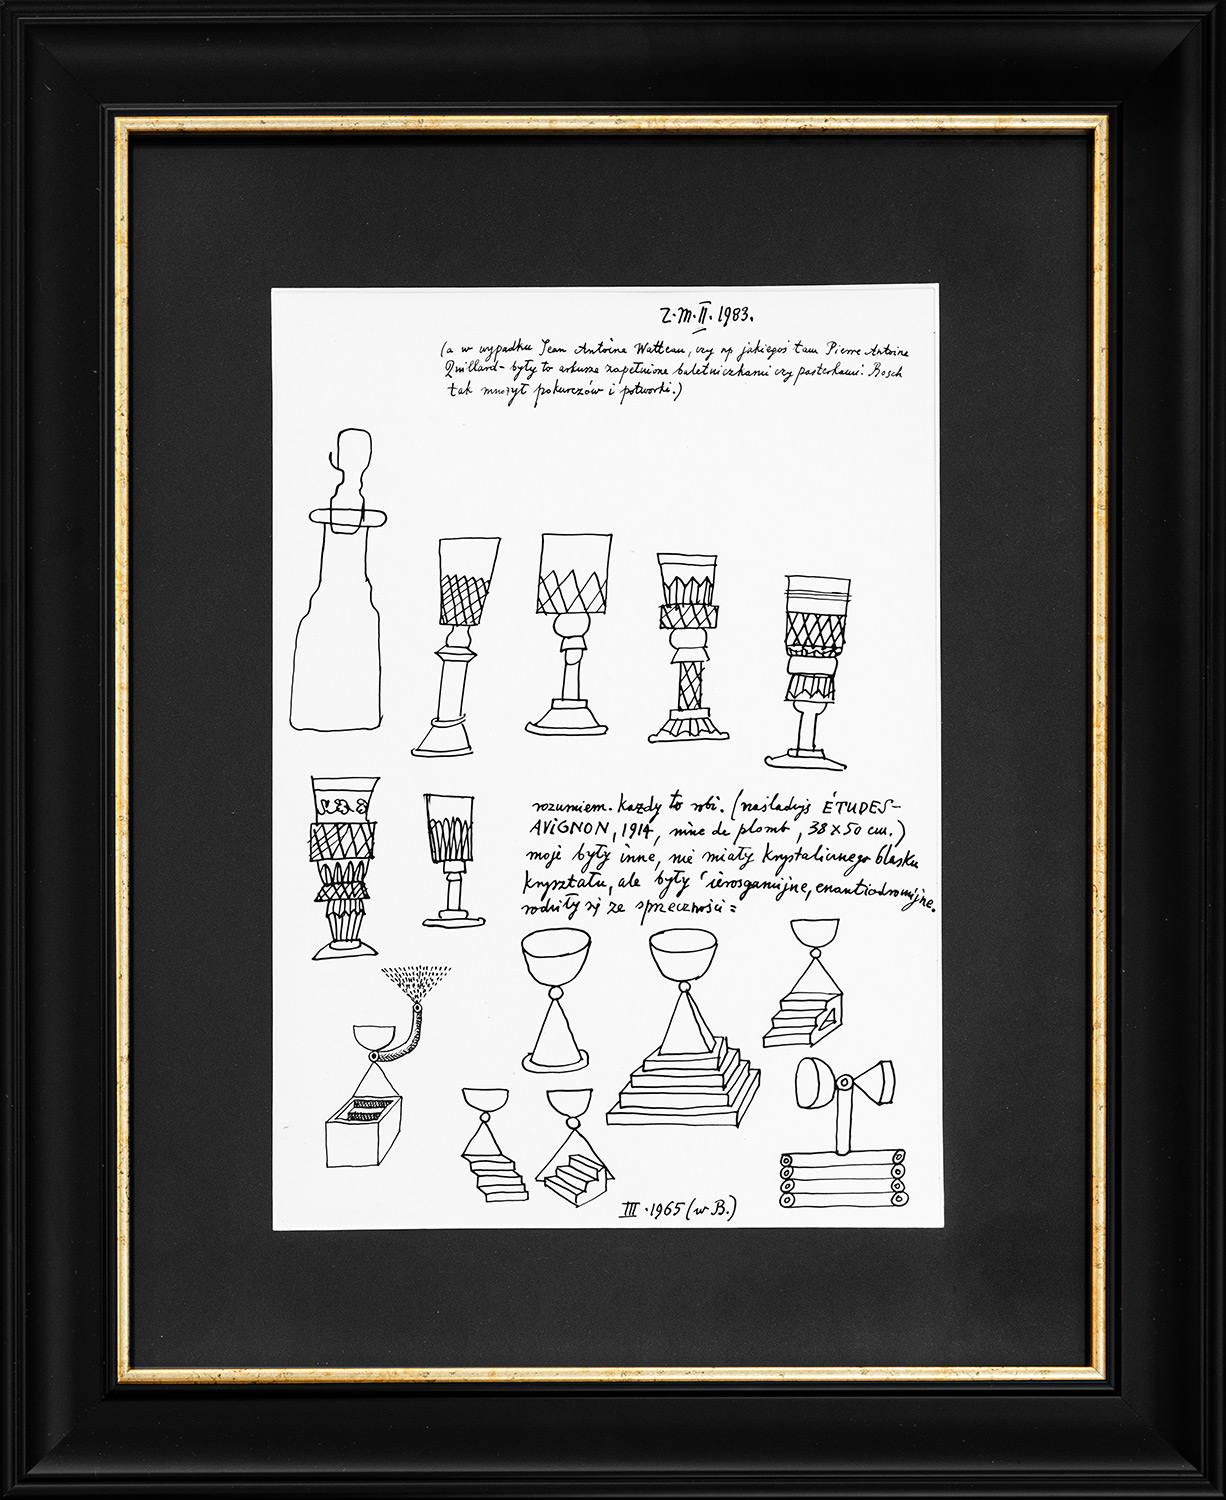 Z.M.II.1983.
(a w wypadku Jean Antoine Watteau, czy np jakiegoś tam Pierre Antoine
Quillard - były to arkusze zapełnione baletniczkami czy pasterkami. Bosch
tak mnożył pokurczów i potworki.)
rozumiem. każdy to robi. (naśladuję ÉTUDES-
AViGNON, 1914, mine de plomb, 38 x 50 cm.)
moje były inne, nie miały krystalicznego blasku
kryształu, ale były ierosgamijne, enantiodromijne.
rodziły się ze sprzeczności =
III.1965 (w B.)